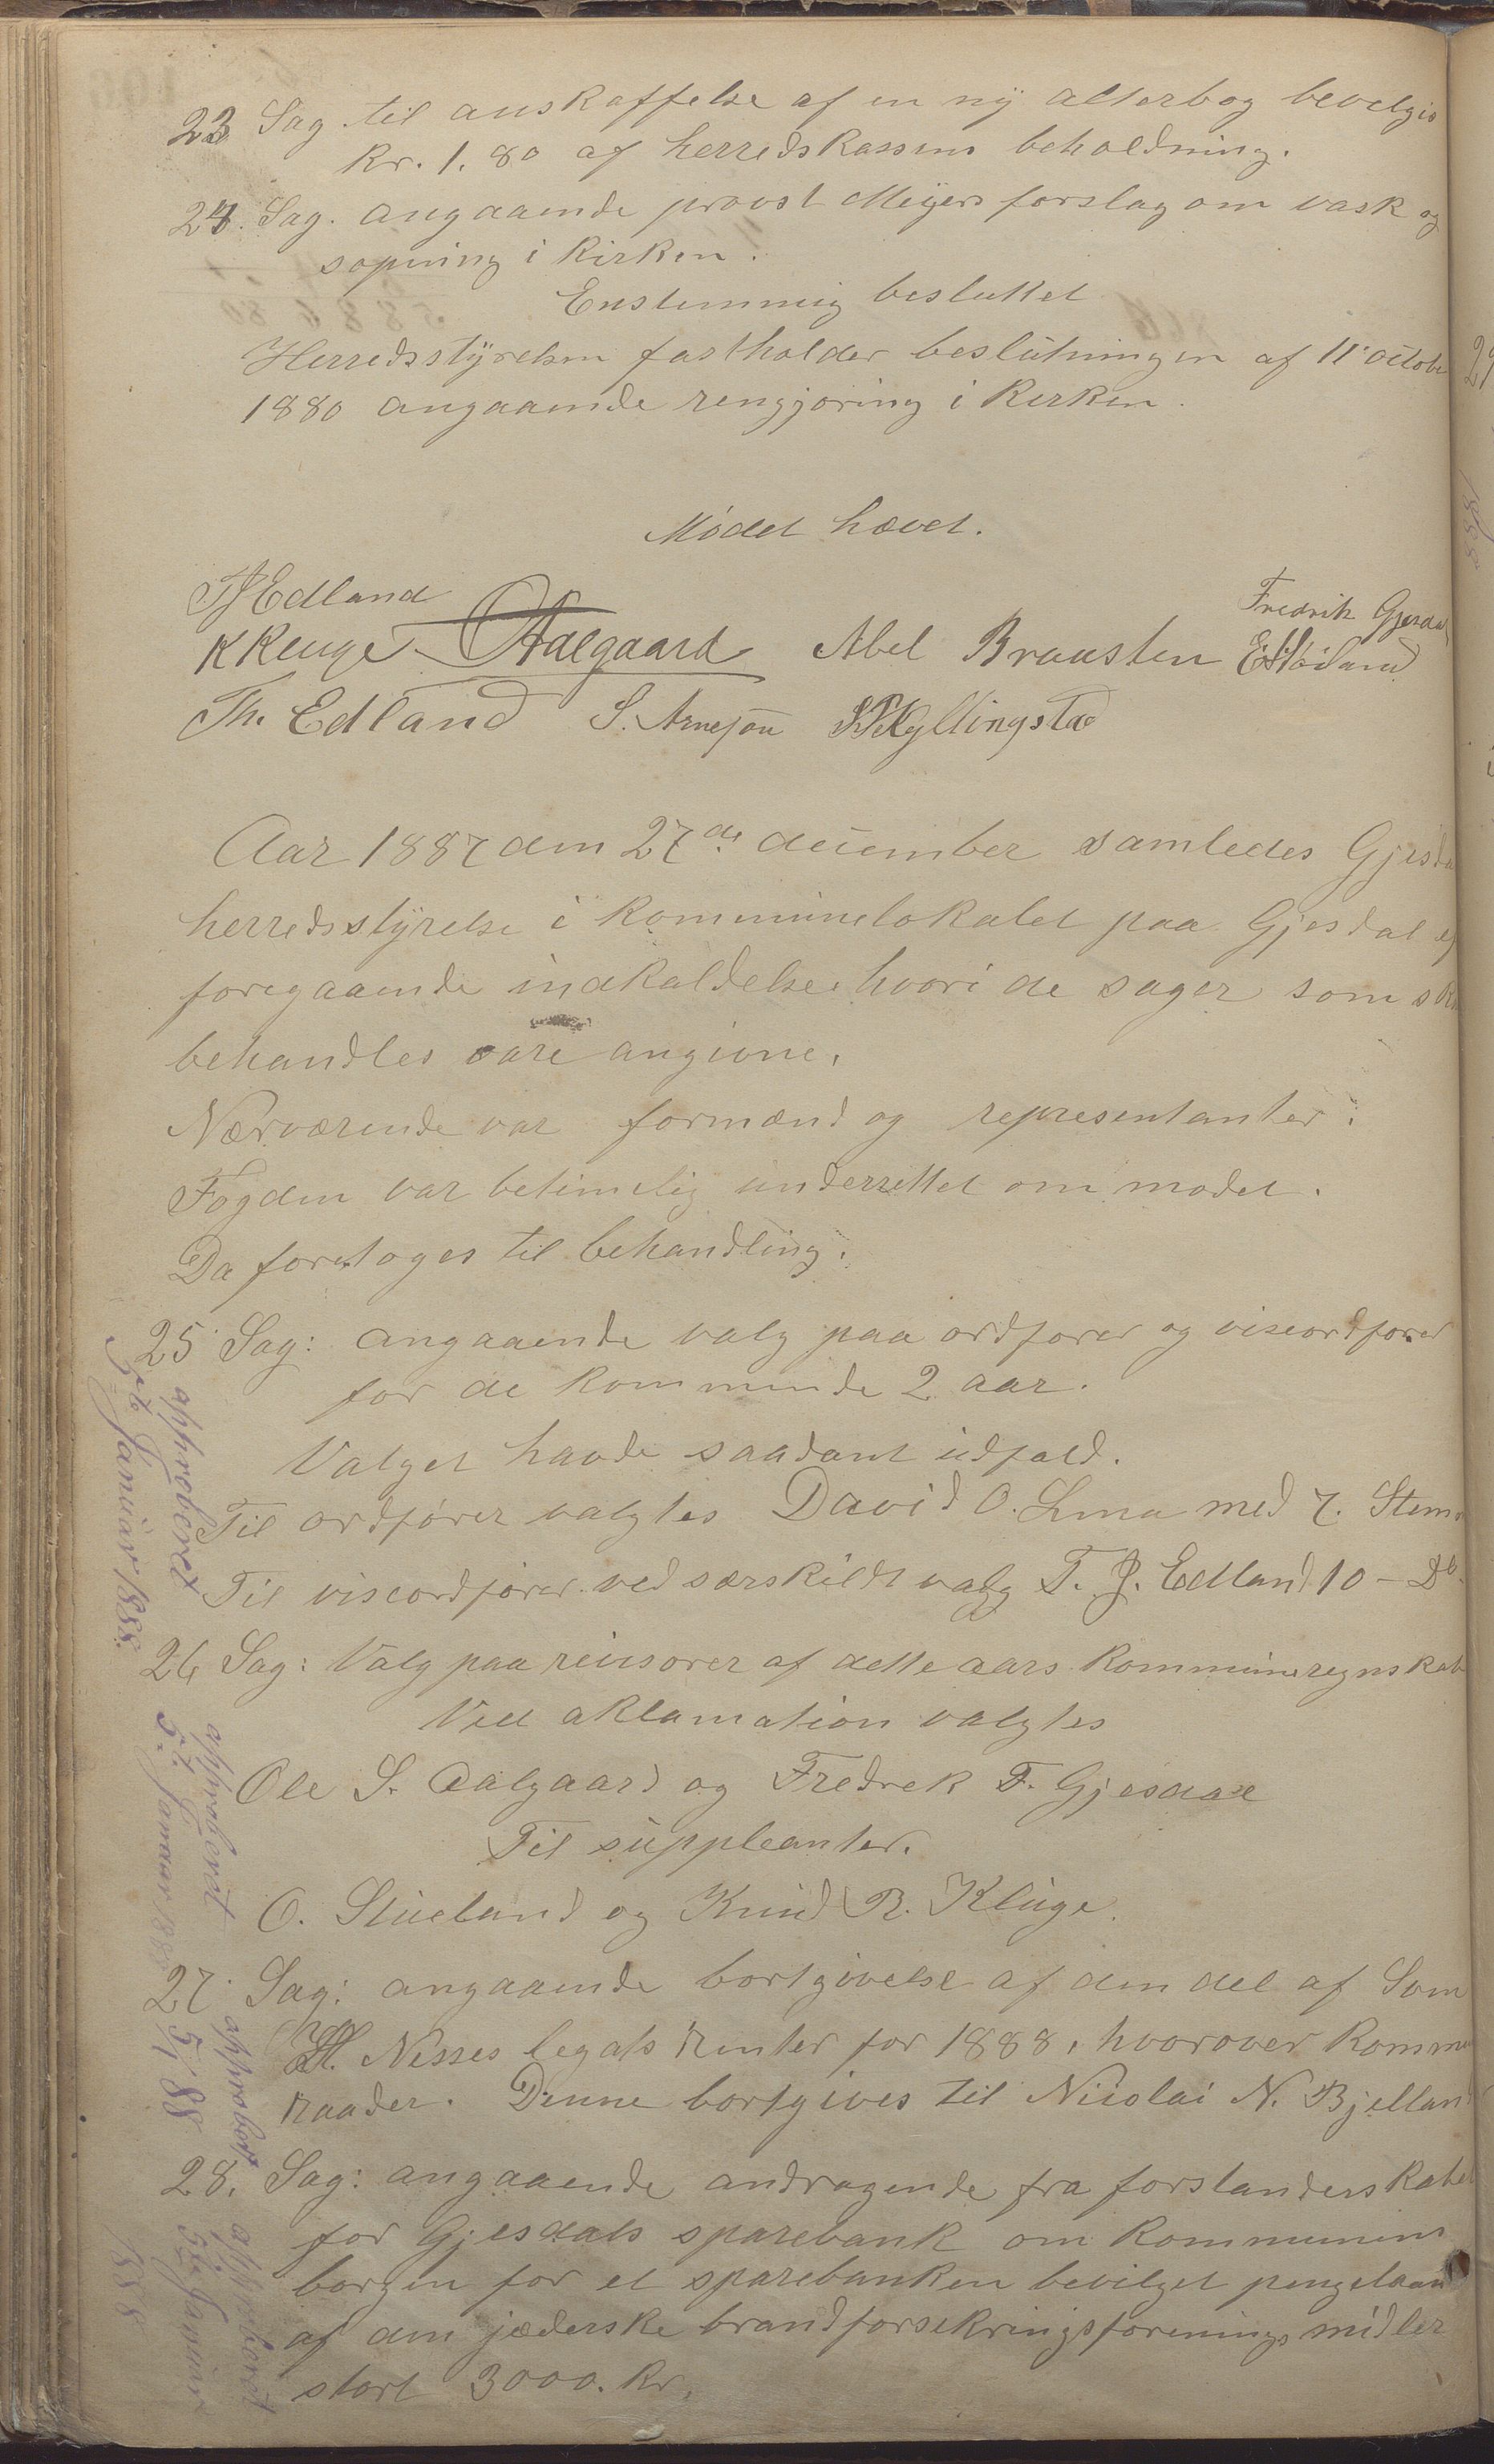 23 Sag til anskaffelse af en ny alterbog bevelges
kr. 1,80 af herredskassens beholdning.
24. Sag. angaaende provst Meyers forslag om vask og
sopning i kirken.
Enstemmig besluttet
Herredsstyrelsen fastholder beslutningen af 11' octobe
1880 angaaende rengjøring i kerken.
Mødet hævet.
TJEdland
Fredrik Gjesdal
K Kluge OAalgaard Abel Braasten
Th. Edland S. Arnesøn Kyllingstad
Aar 1887 den 27de december samledes Gjesda
herredsstyrelse i kommunelokalet paa Gjesdal ef
foregaaende indkaldelse hvori de sager som sk
behandles vare angivne.
Nærværende var formænd og representanter:
Fogden var betimelig underrettet om mødet.
Da foretoges til behandling.
25 Sag: angaaende valg paa ordfører og viseordfører
for de kommende 2 aar.
Valget havde saadant udfald.
Til ordfører valgtes David O. Lima med 7. Stem
Til viseordfører ved særskildt valg T. J. Edland 10 - Do.
approberet
5te Januar 1888.
26 Sag: Valg paa revisorer af dette aars kommuneregnskab
Ved aklamation valgtes
Ole S. Aalgaard og Fredrek F. Gjesdal
Til suppleanter.
O. Stueland og Knud R. Kluge.
approberet
5te Januar 188
27. Sag: angaaende bortgivelse af den del af Søm
Nesses legats renter for 1888, hvorover komme
raader. Denne bortgives til Nicolai N. Bjelland
approbert
5/1 88
28. Sag: angaaende andragende fra forstanderskabet
for Gjesdals sparebank om kommunens
borgen for et sparebanken bevilget pengelaan
af den jæderske brandforsekringsforenings midler
stort 3000. kr.
approberet
5te Januar
1888